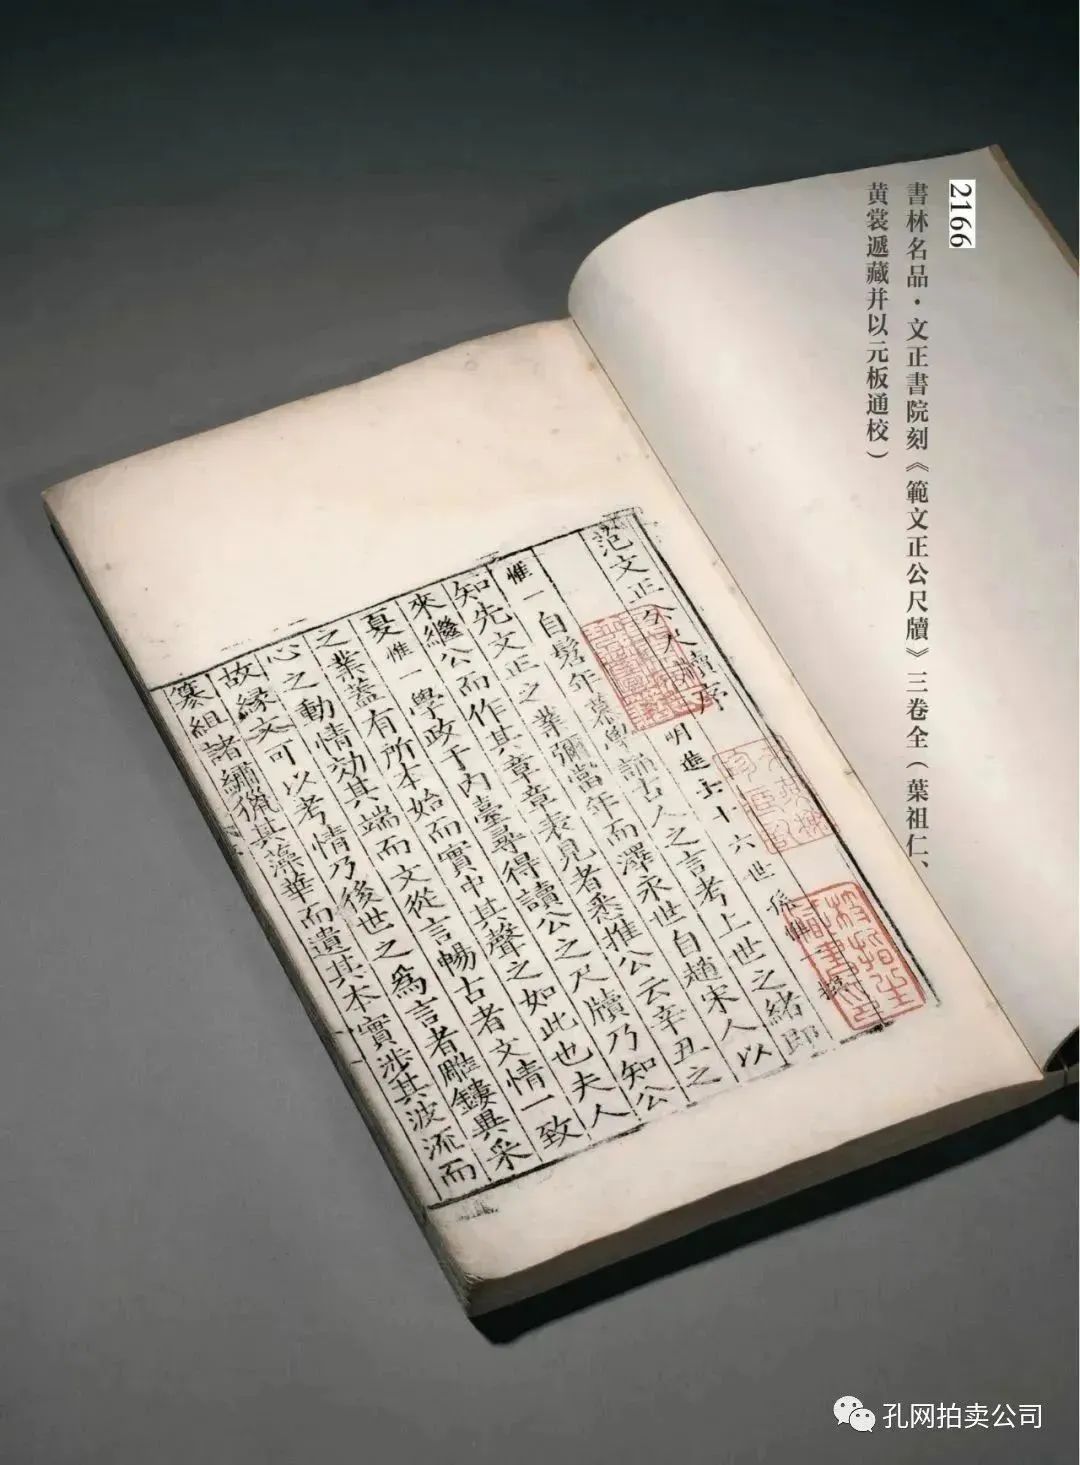 2166
書林名品·文正書院刻《範文正公尺牘》三卷全(葉祖仁、
黄裳遞藏并以元板通校)
范文正公尺牘序
明進士十六世孫惟一撰
惟一自髫年慕學誦古人之言考上世之緒即
知先文正之業彌當年而澤永世自趙宋人以
來繼公而作其章章表見者悉推公云辛丑之
夏惟一學政于内臺尋得讀公之尺牘乃知公
之業蓋有所本始而實中其聲之如此也夫人
心之動情効其端而文從言暢古者文情一致
故緣文可以考情乃後世之為言者雕鏤異采
纂組諸繡獵其藻華而遺其本實涉其波流而
孔网拍卖公司